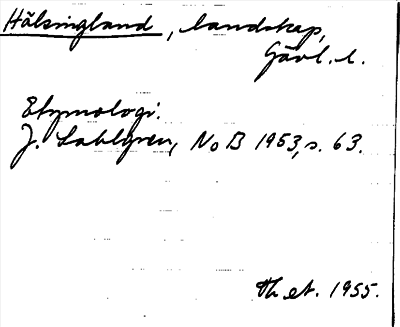 Hälsingland, landskap,
Gävl. l.
Etymologi.
J. Sahlgren, NoB 1953, s. 63.
Th et. 1955.